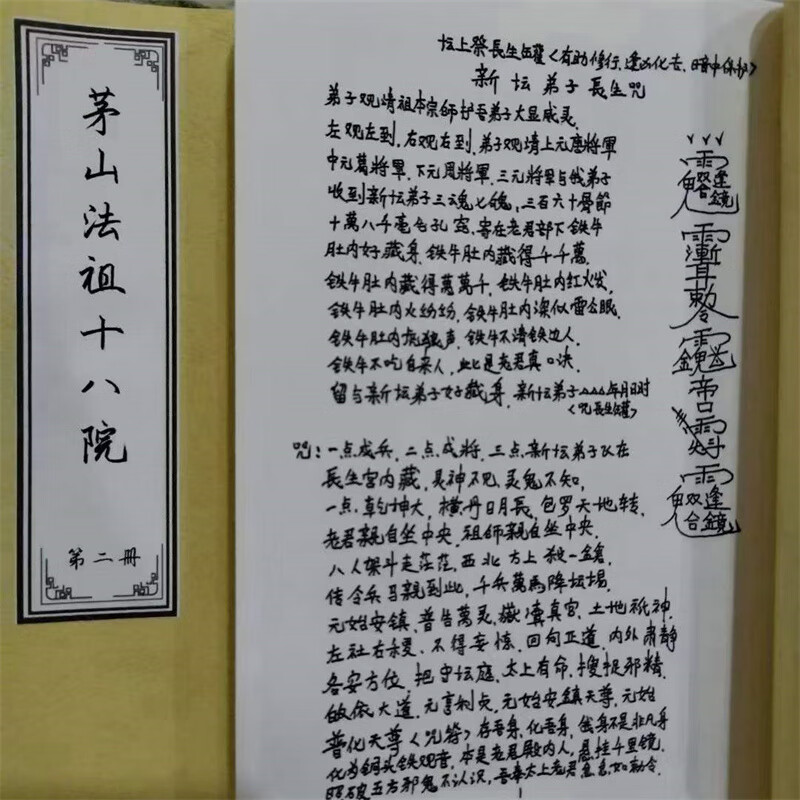 茅山法祖十八院
第二册
坛上祭長生罐〈有助修行、逢凶化吉、暗中保护〉
新坛弟子長生咒
弟子观請祖本宗師护吾弟子大显威灵.
左观左到,右观右到,弟子观請上元唐將軍
中元葛將軍.下元周將軍.三元將軍与俄弟子
收到新坛弟子三魂七魄,三百六十骨節
十萬八千毫毛孔窍,寄在老君部下铁牛
肚内好藏身.铁牛肚内藏得千千萬.
铁牛肚内藏得萬萬千.铁牛肚内红火发.
铁牛肚内火纷纷.铁牛肚内深似雷公眼.
铁牛肚内虎狼声.铁牛不请铁边人.
铁牛不吃自来人,此是老君真口诀.
留与新坛弟子好藏身.新坛弟子△△△年月日时
〈咒長生罐〉
咒:一点成兵,二点成將,三点新坛弟子改在
長生宫内藏,灵神不见,灵鬼不知,
一点乾坤大,横丹日月長,包罗天地转.
老君親自坐中央,祖師親自坐中央.
八人架斗走茫茫,西北方上
传令兵马親到此,千兵萬馬降坛場.
元始安镇.普告萬灵.嶽瀆真官.土地祇神.
左社右稷.不得妄惊.回向正道.内外肅静
各安方位.把守坛庭.太上有命.搜捉邪精.
皈依大道.元亨利贞.元始安鎮天尊,元始
普化天尊〈咒答〉存吾身,化吾身,俄身不是非凡身
化为铜头铁观音,本是老君殿内人,悬挂千里镜.
照破五方邪鬼不认识,吾奉太上老君急急如勅令.